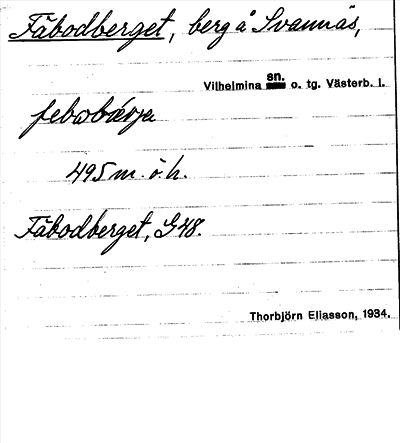 Fäbodberget, berg å Svannäs,
Vilhelmina sn. o. tg. Västerb. l.
495 m. ö. h.
Fäbodberget, G 48.
Thorbjörn Eliasson, 1934.